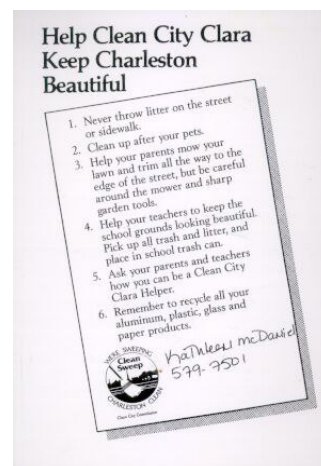 Help Clean City Clara
Keep Charleston
Beautiful
1. Never throw litter on the street
or sidewalk.
2. Clean up after your pets.
3. Help your parents mow your
lawn and trim all the way to the
edge of the street, but be careful
around the mower and sharp
garden tools.
4. Help your teachers to keep the
school grounds looking beautiful.
Pick up all trash and litter, and
place in school trash can.
5. Ask your parents and teachers
how you can be a Clean City
Clara Helper.
6. Remember to recycle all your
aluminum, plastic, glass and
paper products.
WE'RE SWEEPING
Clean
Sweep
CHARLESTON CLEAN
Clean City Commission
Kathleen McDaniel
579-7501